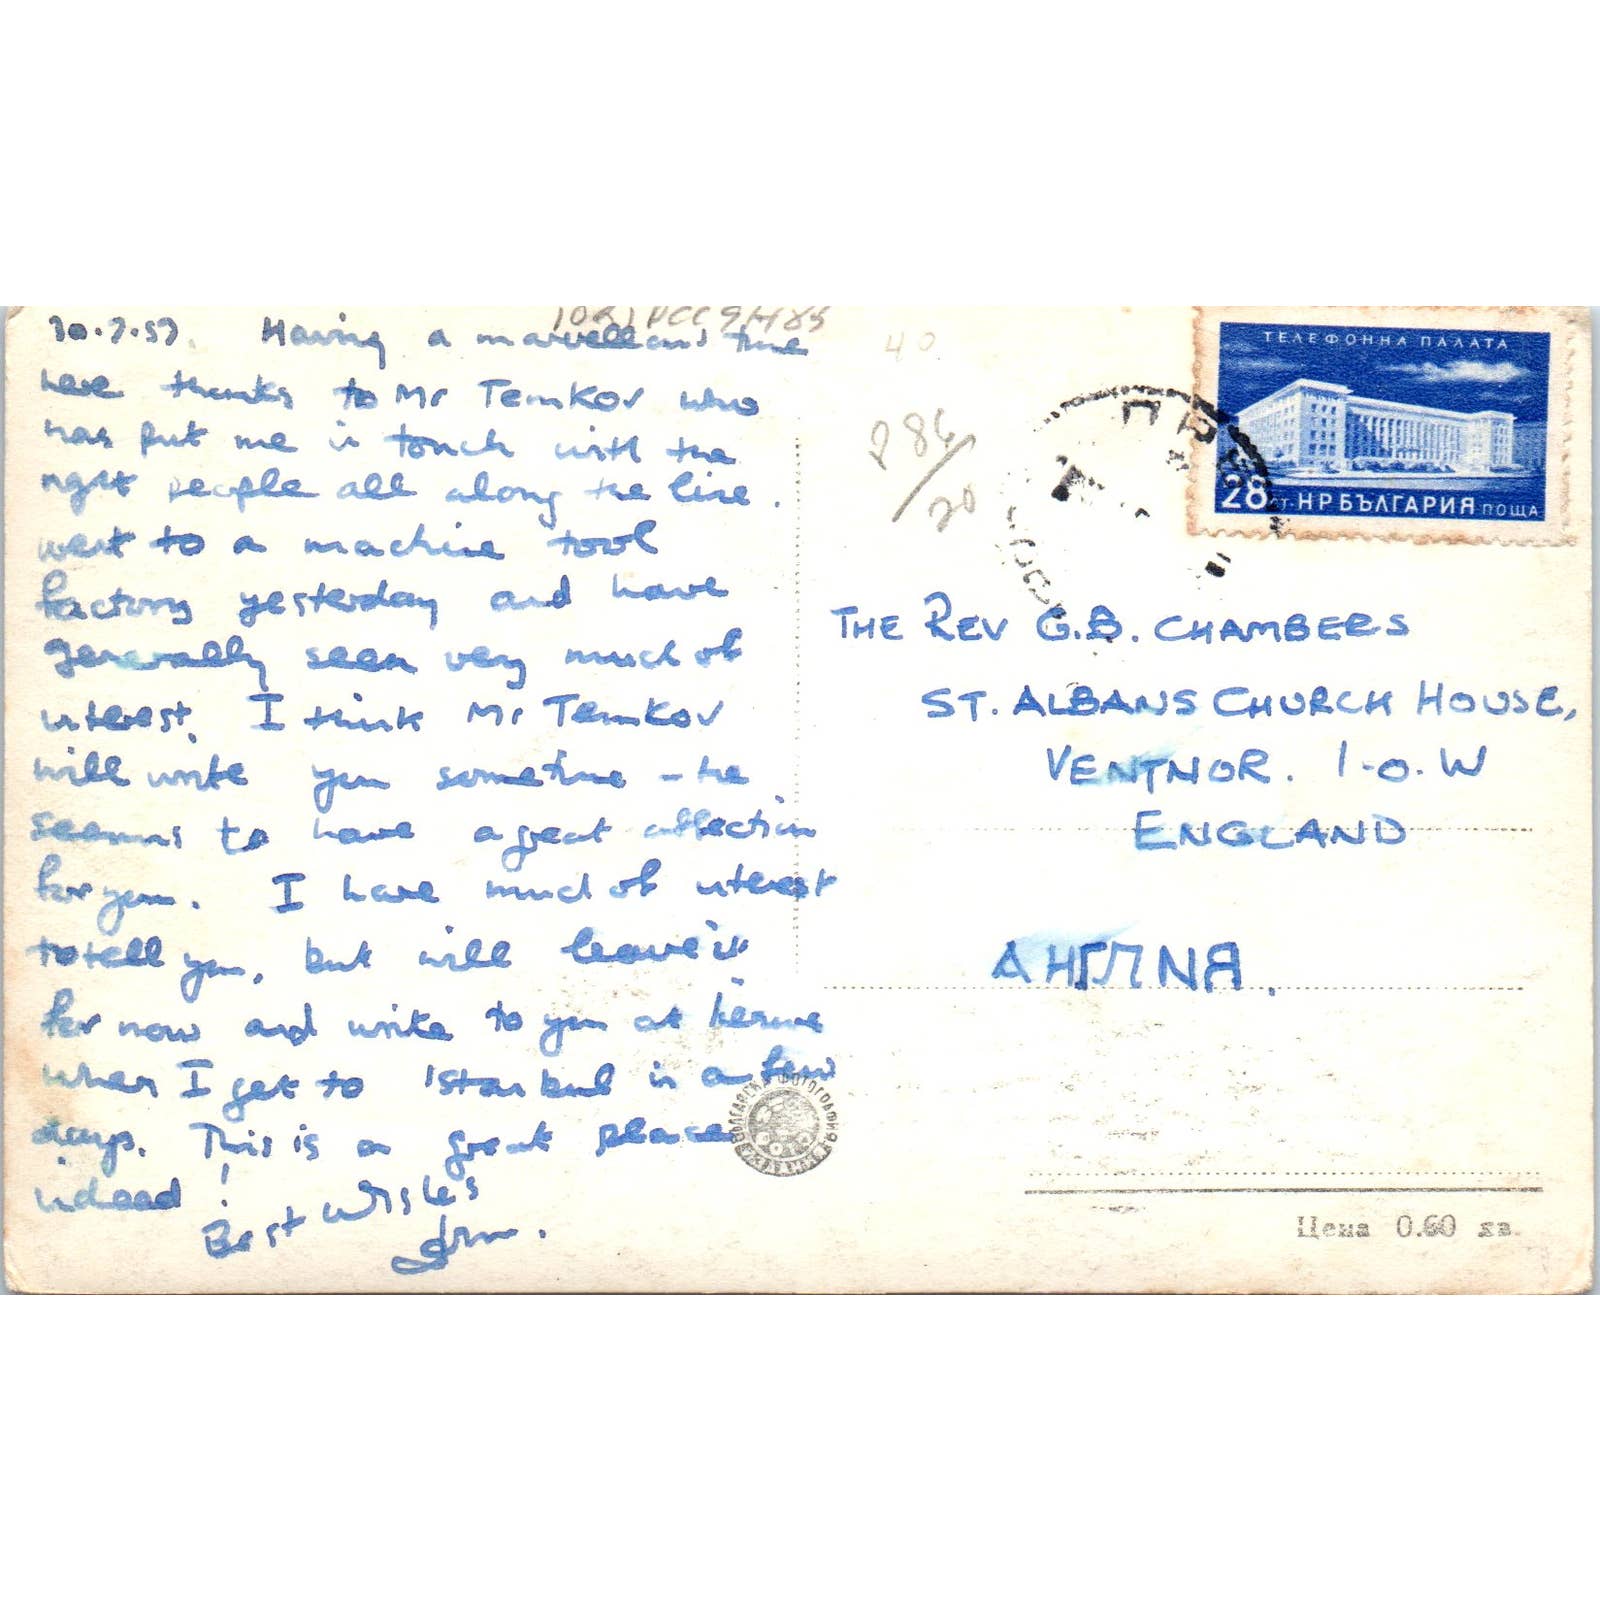 Having a marvellous time
here thanks to Mr Temkov who
has put me in touch with the
right people all along the line.
went to a machine tool
factory yesterday and have
generally seen very much of
interest. I think Mr Temkov
will write you sometime - he
seems to have a great affection
for you. I have much of interest
to tell you, but will leave it
for now and write to you at
when I get to Istanbul in a few
days. This is a great place
indeed!
Best Wishes
40
ТЕЛЕФОННА ПАЛАТА
28 СТ. НР БЪЛГАРИЯ ПОЩА
THE REV G.B. CHAMBERS
ST. ALBANS CHURCH HOUSE,
VENTNOR. I-O.W
ENGLAND
АНГЛNЯ.
БЪЛГАРСКА ФОТОГРАФИЯ
Цена 0.60 лв.